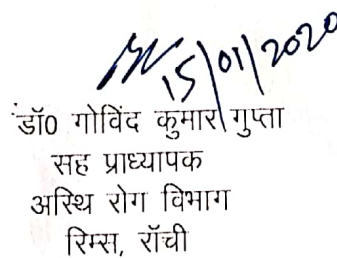 15/01/2020
डॉ0 गोविंद कुमार गुप्ता
सह प्राध्यापक
अस्थि रोग विभाग
रिम्स, राँची